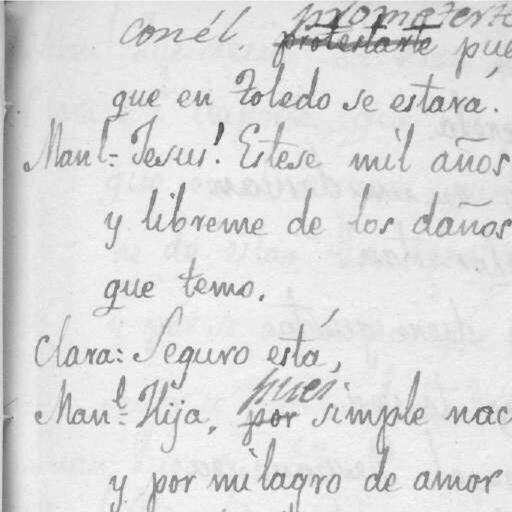 prometerte
con él protestarte pue
que en Toledo se estara.
Manl= Jesus! Estese mil años
y libreme de los daños
que temo.
Clara: Seguro está,
pues
Manl= Hija, por simple nac
y por milagro de amor